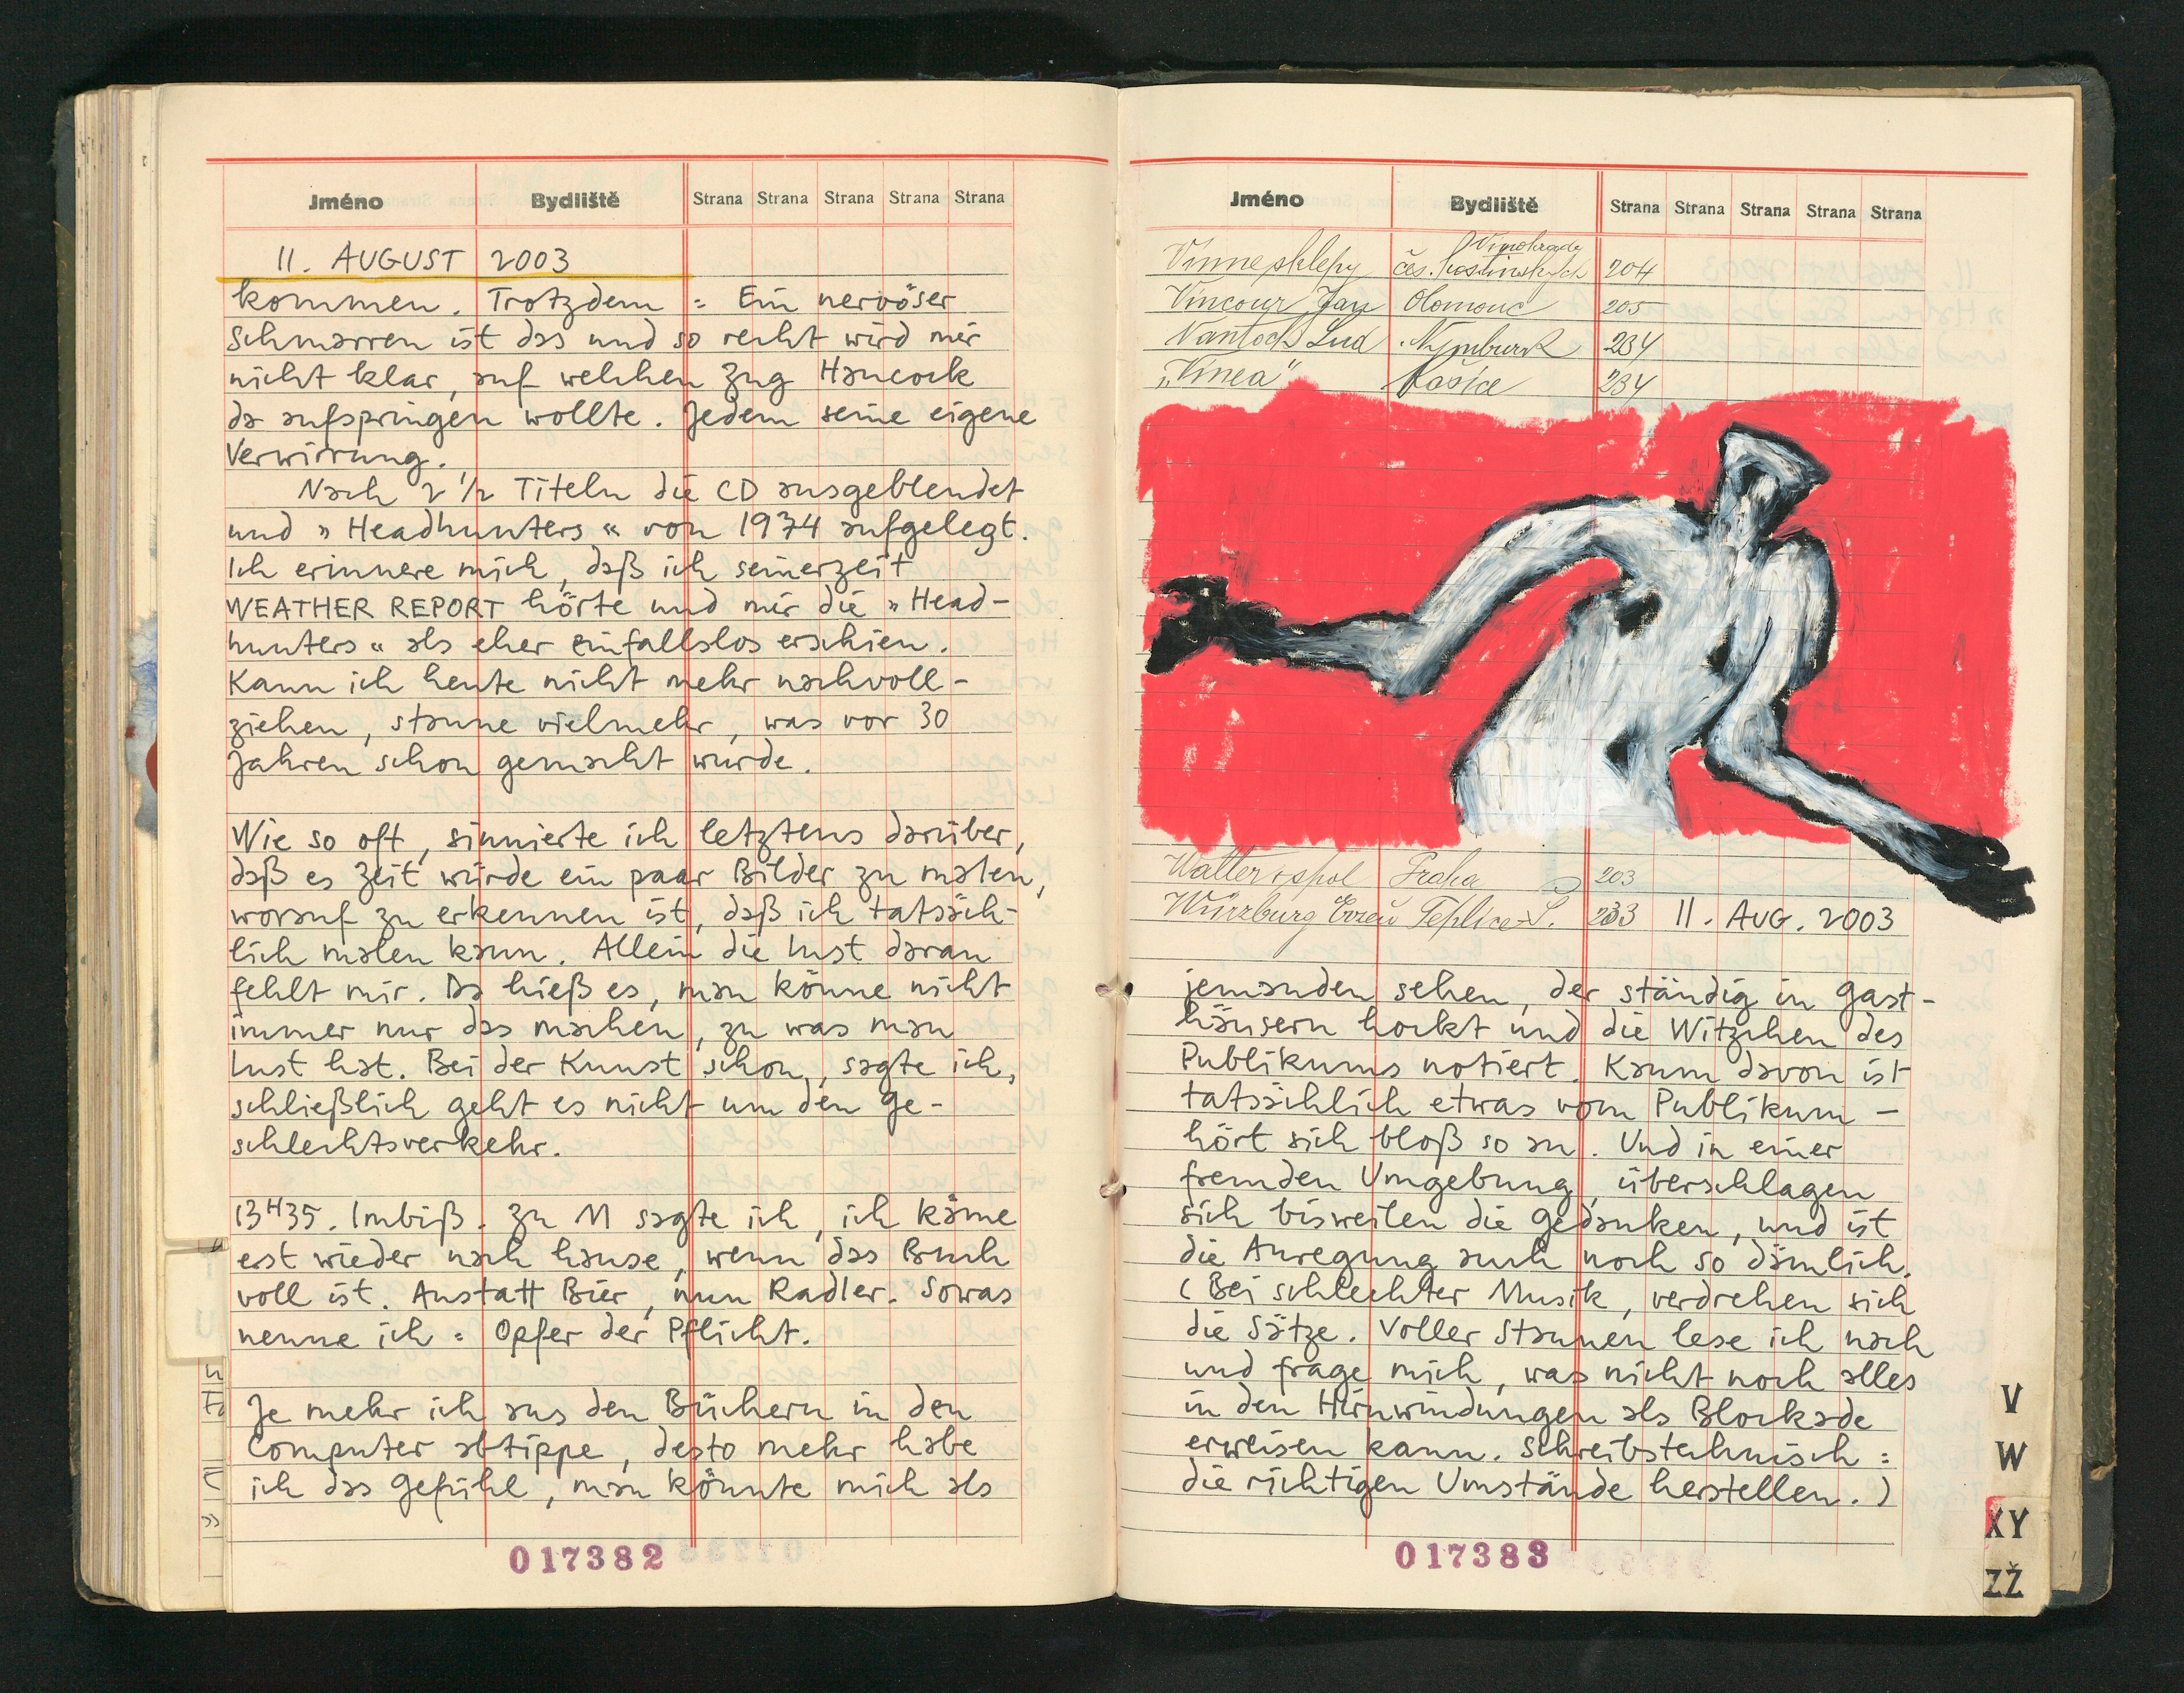 Jméno Bydliště Strana Strana Strana Strana Strana
11. AUGUST 2003
kommen. Trotzdem: Ein nervöser
Schmarren ist das und so recht wird mir
nicht klar, auf welchen Zug Hancock
da aufspringen wollte. Jedem seine eigene
Verwirrung.
Nach 2 1/2 Titeln die CD ausgeblendet
und »Headhunters« von 1974 aufgelegt.
Ich erinnere mich, daß ich seinerzeit
WEATHER REPORT hörte und mir die »Head-
hunters« als eher einfallslos erschien.
Kann ich heute nicht mehr nachvoll-
ziehen, staune vielmehr, was vor 30
Jahren schon gemacht wurde.
Wie so oft, sinnierte ich letztens darüber,
daß es Zeit würde ein paar Bilder zu malen,
worauf zu erkennen ist, daß ich tatsäch-
lich malen kann. Allein die Lust daran
fehlt mir. Da hieß es, man könne nicht
immer nur das machen, zu was man
Lust hat. Bei der Kunst schon, sagte ich,
schließlich geht es nicht um den Ge-
schlechtsverkehr.
13H35. Imbiß. Zu M sagte ich, ich käme
erst wieder nach hause, wenn das Buch
voll ist. Anstatt Bier, nun Radler. Sowas
nenne ich: Opfer der Pflicht.
Je mehr ich aus den Büchern in den
Computer abtippe, desto mehr habe
ich das Gefühl, man könnte mich als
017382
Jméno Bydliště Strana Strana Strana Strana Strana
Vinné sklepy čes. 204
Vincour Jan Olomouc 205
Lud. Nymburk 234
„Vinea" 234
Walter i spol Praha 203
Würzburg Teplice-Š. 233 11. AUG. 2003
jemanden sehen, der ständig in Gast-
häusern hockt und die Witzchen des
Publikums notiert. Kaum davon ist
tatsächlich etwas vom Publikum –
hört sich bloß so an. Und in einer
fremden Umgebung, überschlagen
sich bisweilen die Gedanken, und ist
die Anregung auch noch so dämlich.
(Bei schlechter Musik, verdrehen sich
die Sätze. Voller Staunen lese ich nach
und frage mich, was nicht noch alles
in den Hirnwindungen als Blockade
erweisen kann. Schreibstechnisch:
die richtigen Umstände herstellen.)
017383
V
W
XY
ZŽ